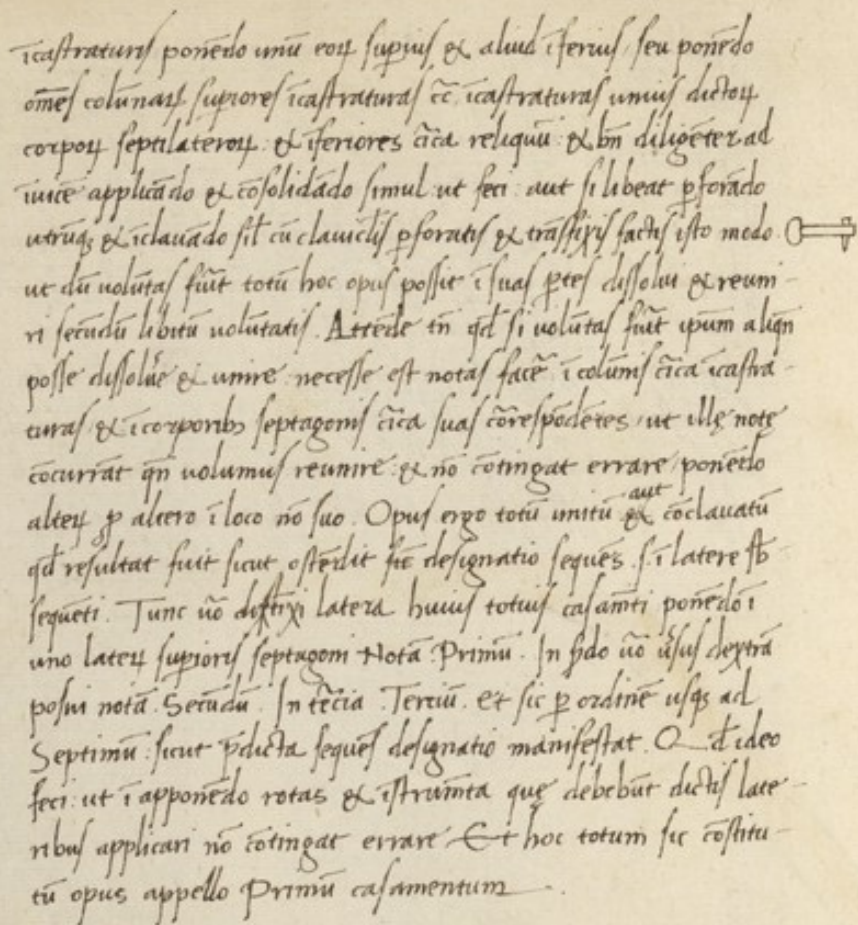 īcastraturis ponēdo unū eoꝝ supius & aliud īferius / seu ponēdo
om̄es colūnaꝝ supiores īcastraturas cc̄ īcastraturas unius dictoꝝ
corpoꝝ septilateroꝝ: & īferiores cīca reliquū: & bn̄ diligēter ad
īuicē applicādo & cōsolidādo simul: ut feci: aut si libeat ꝑforādo
utrūqꝫ & īclauādo sil̄ cū clauicl̄is ꝑforatis & trāsfixis factis isto modo
ut dū volūtas fūit totū hoc opus possit ī suas ꝑtes dissolui & reuni-
ri secūdū libitū volūtatis. Attēde tn̄ qd̄ si volūtas fūit ipum aliqn̄
posse dissolu̅e & unire: necesse est notas facē ī colūnis cīca īcastra-
turas & ī corporibꝫ septagonis cīca suas corr̄espōdētes / ut illę notę
cōcurrāt qn̄ volumus reunire: & nō cōtingat errare ponēdo
alteꝝ ꝓ altero ī loco nō suo. Opus ergo totū unitū & aut cōclauatū
qd̄ resultat fuit sicut ostēdit hic designatio sequēs .s. ī latere sb̄
sequēti. Tunc u̅o distīxi latera huius totius casam̄ti ponēdo ī
uno lateꝝ supioris septagoni Notā. Primū. In scd̄o u̅o u̅sus dextrā
posui notā. Secūdū. In tc̄ia. Terciū. Et sic ꝑ ordinē usqꝫ ad
Septimū: sicut p̄dicta sequēs designatio manifestat. Qd̄ ideo
feci: ut ī apponēdo rotas & īstrum̄ta quę debebūt dictis late-
ribus applicari nō cōtingat errare Et hoc totum sic cōstitu-
tū opus appello Primū casamentum.